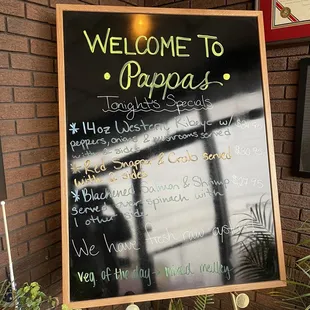 WELCOME TO
• Pappas •
Tonight's Specials
* 14oz Western Ribeye w/
peppers, onions & mushrooms served
with 2 sides
* Red Snapper & Crab served
with 2 sides
* Blackened Salmon & Shrimp
served over spinach with
1 other side
We have fresh raw
Veg of the day - mixed medley